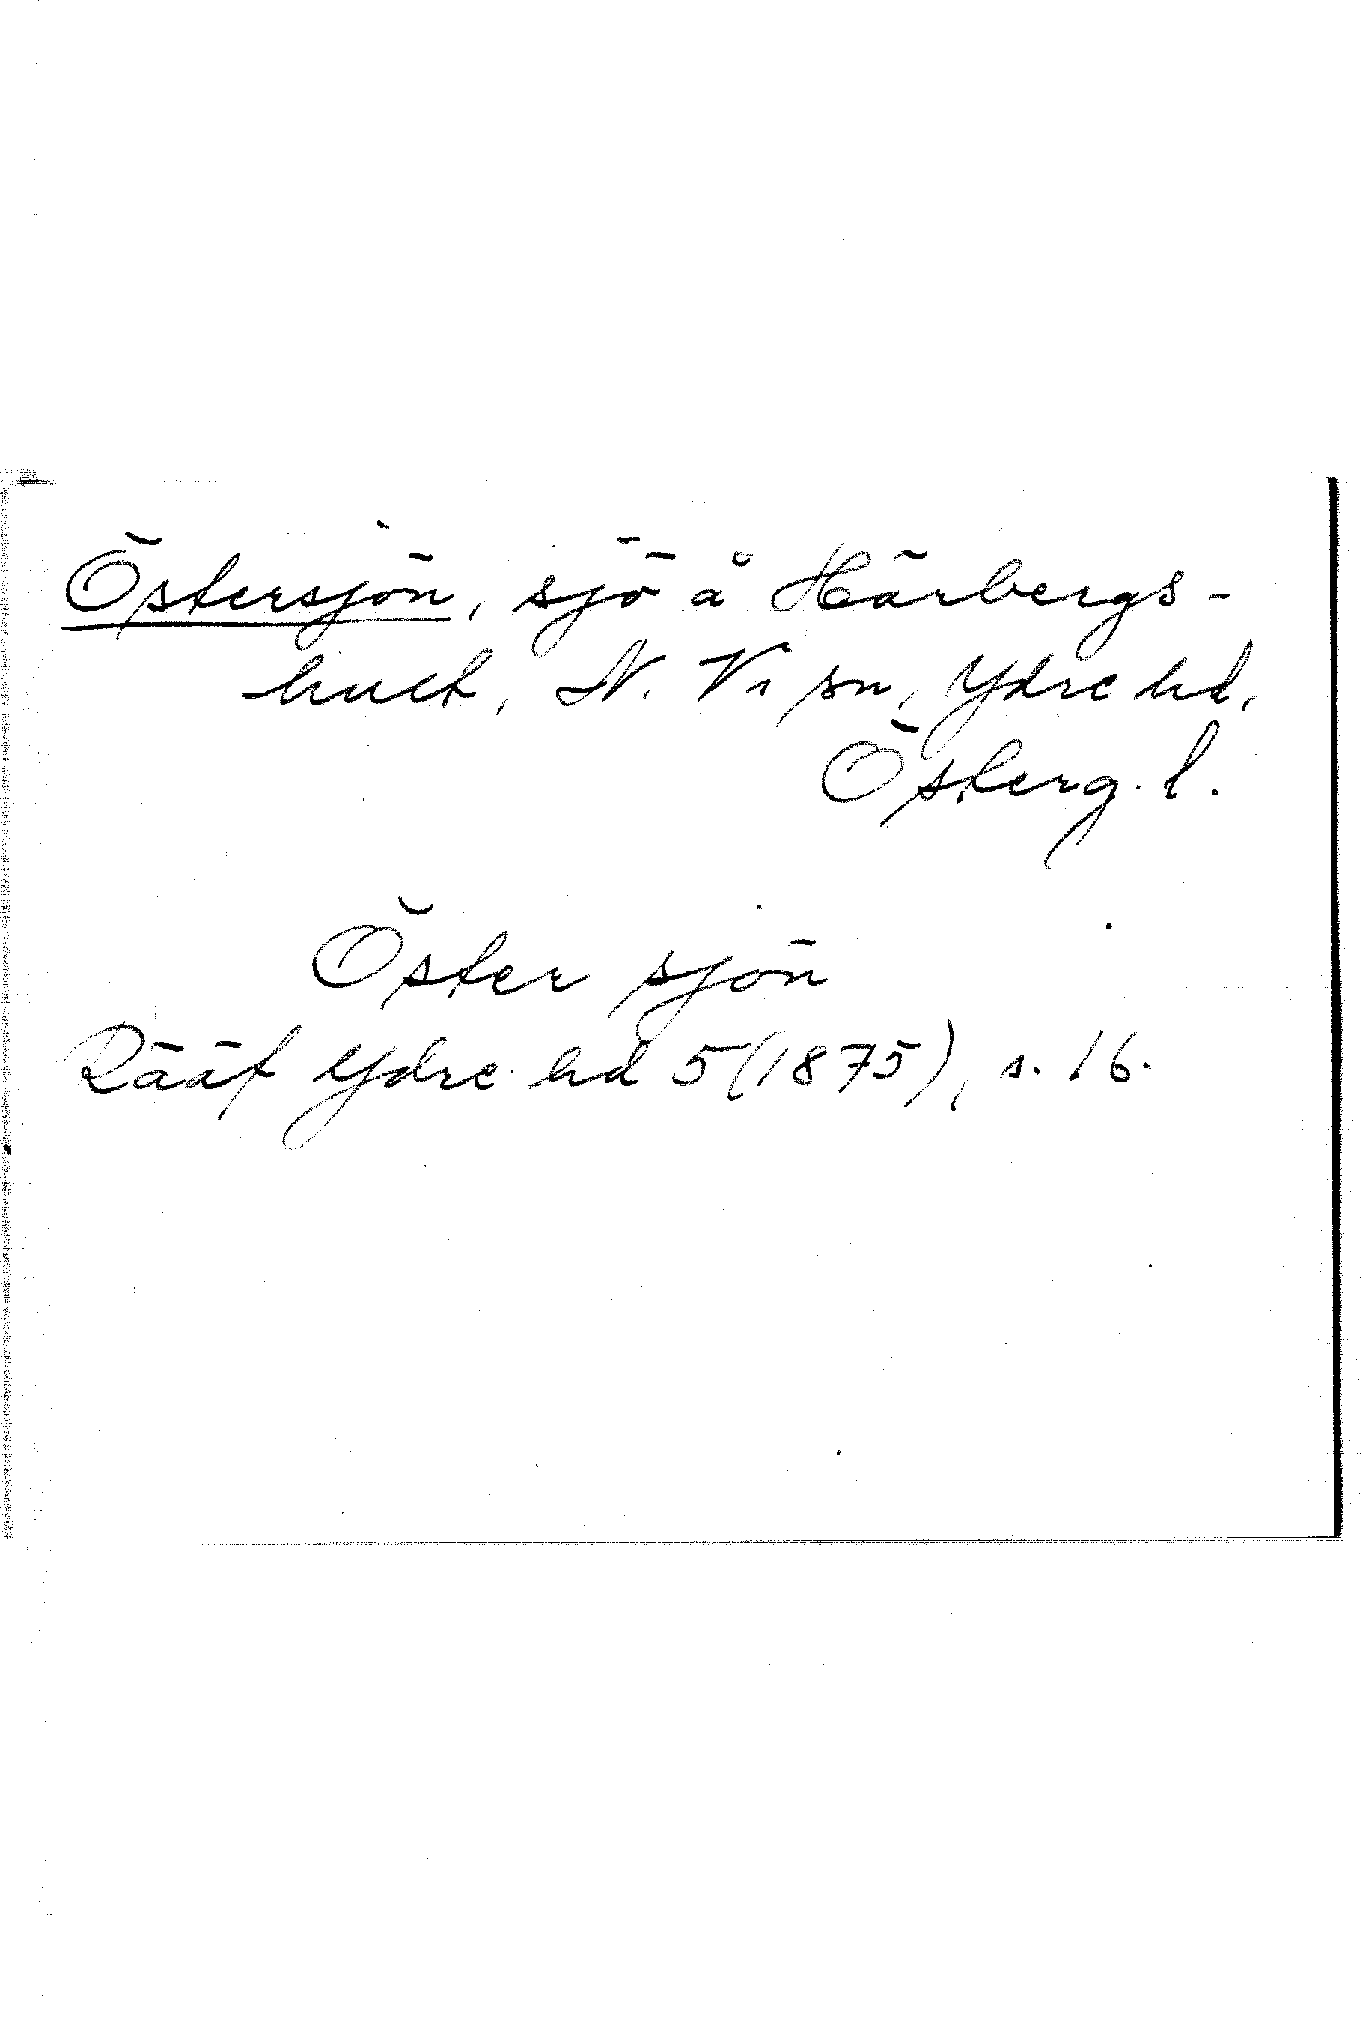 Östersjön, sjö å Härbergs-
hult, N. Vi sn, Ydre hd,
Österg. l.
Öster sjön
Rääf Ydre hd 5 (1875), s. 16.